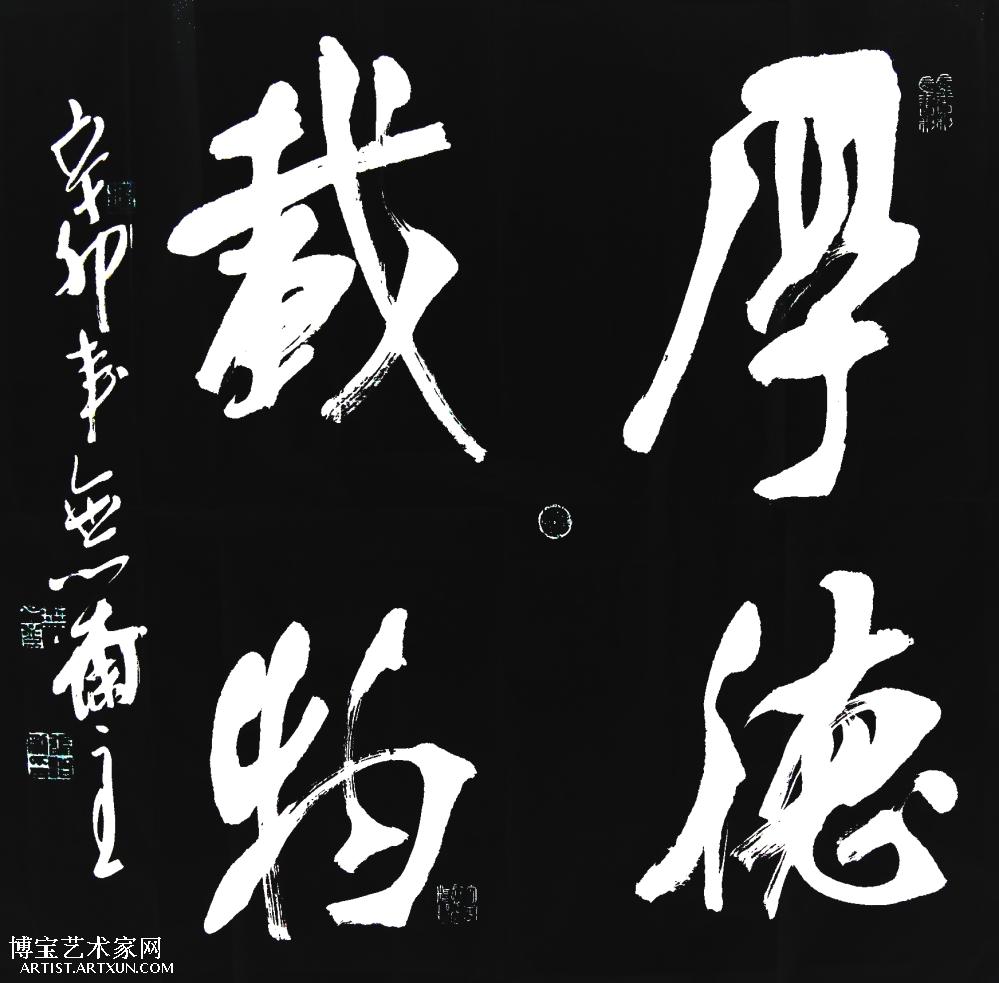 厚德
載物
辛卯春無爾主
博宝艺术家网
ARTIST.ARTXUN.COM